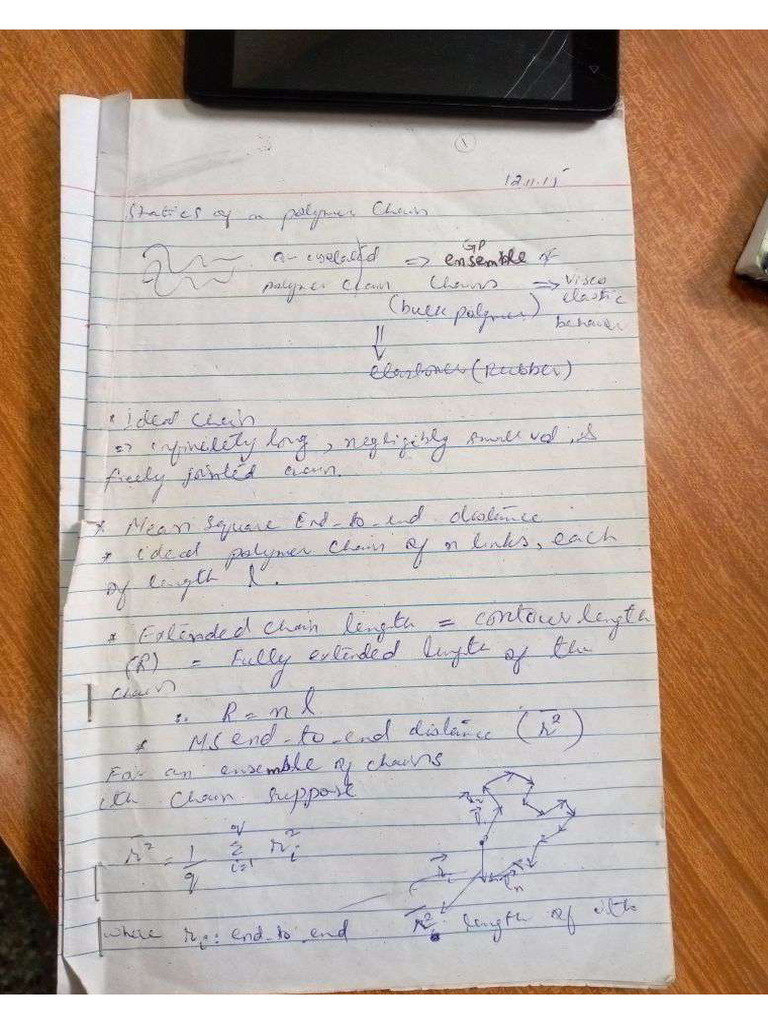 1
12.11.15
Statics of a polymer chain
an isolated ⇒ GP ensemble of
polymer chain chains ⇒ Visco
(bulk polymer) elastic
behavior
⇓
elastomer (Rubber)
• ideal chain
⇒ infinitely long, negligibly small vol, &
freely jointed chain.
* Mean square End-to-end distance
* ideal polymer chain of n links, each
of length l.
* Extended chain length = contour length
(R) = Fully extended length of the
chain
∴ R = n l
* MS end-to-end distance (r̄²)
For an ensemble of chains
ith chain suppose
r̄² = 1/q Σ_{i=1}^{q} r_i²
where r_i : end-to-end length of ith